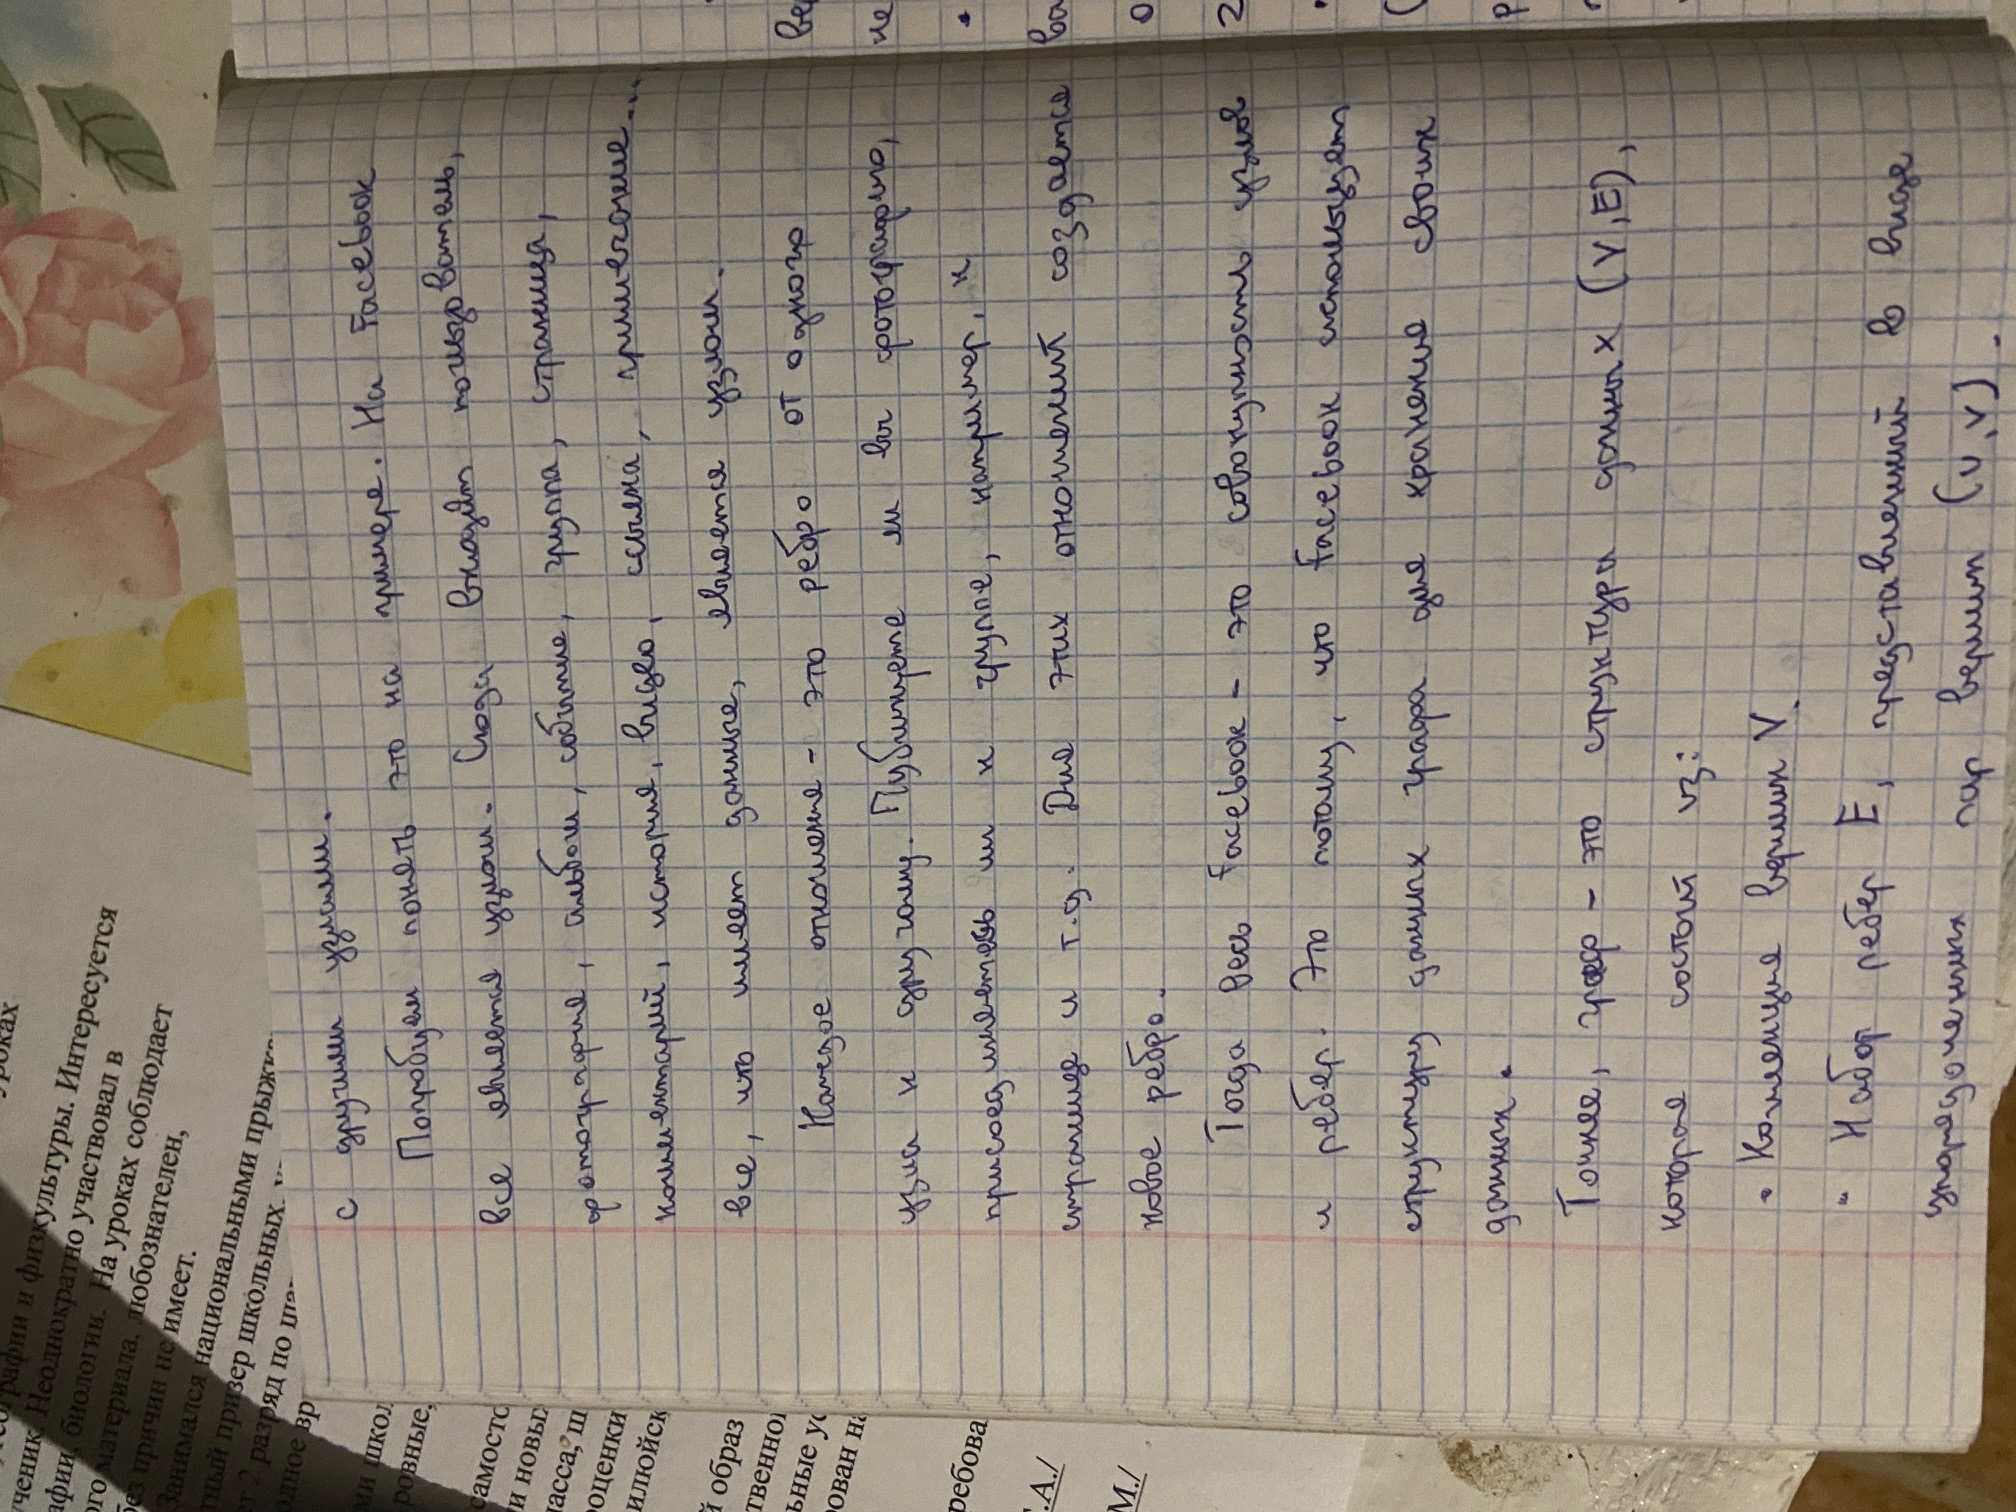 уроках
географии и физкультуры. Интересуется
ученик. Неоднократно участвовал в
афии, биологии. На уроках соблюдает
ого материала. любознателен,
без причин не имеет.
Занимался национальными прыжка
тный призер школьных,
ет 2 разряд по
одное вр
ми школ
ровные,
самосто
и новых
ласса, ш
ооценки
илюйск
й образ
твенно
ьные ус
ован на
ребова
Г.А./
М./
с другими узлами.
Попробуем понять это на примере. На Facebook
все является узлом. Сюда входят пользователь,
фотография, альбом, событие, группа, страница,
комментарий, история, видео, ссылка, примечание...
все, что имеет данные, является узлом.
Каждое отношение - это ребро от одного
узла к другому. Публикуете ли вы фотографию,
присоединяетесь ли к группе, например, к
странице и т.д. Для этих отношений создается
новое ребро.
Тогда весь Facebook - это совокупность узлов
и ребер. Это потому, что Facebook использует
структуру данных графа для хранения своих
данных.
Точнее, граф - это структура данных (V,E),
которая состоит из:
• Коллекция вершин V.
• Набор ребер E, представленный в виде
упорядоченных пар вершин (u,v).
ве
не
ва
о
2
(
р